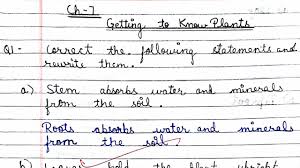 Ch-7
Getting to Know Plants
Q1- Correct the following statements and
rewrite them.
a) Stem absorbs water and minerals
from the soil.
Roots absorbs water and minerals
from the soil.
b) Leaves hold the plant upright